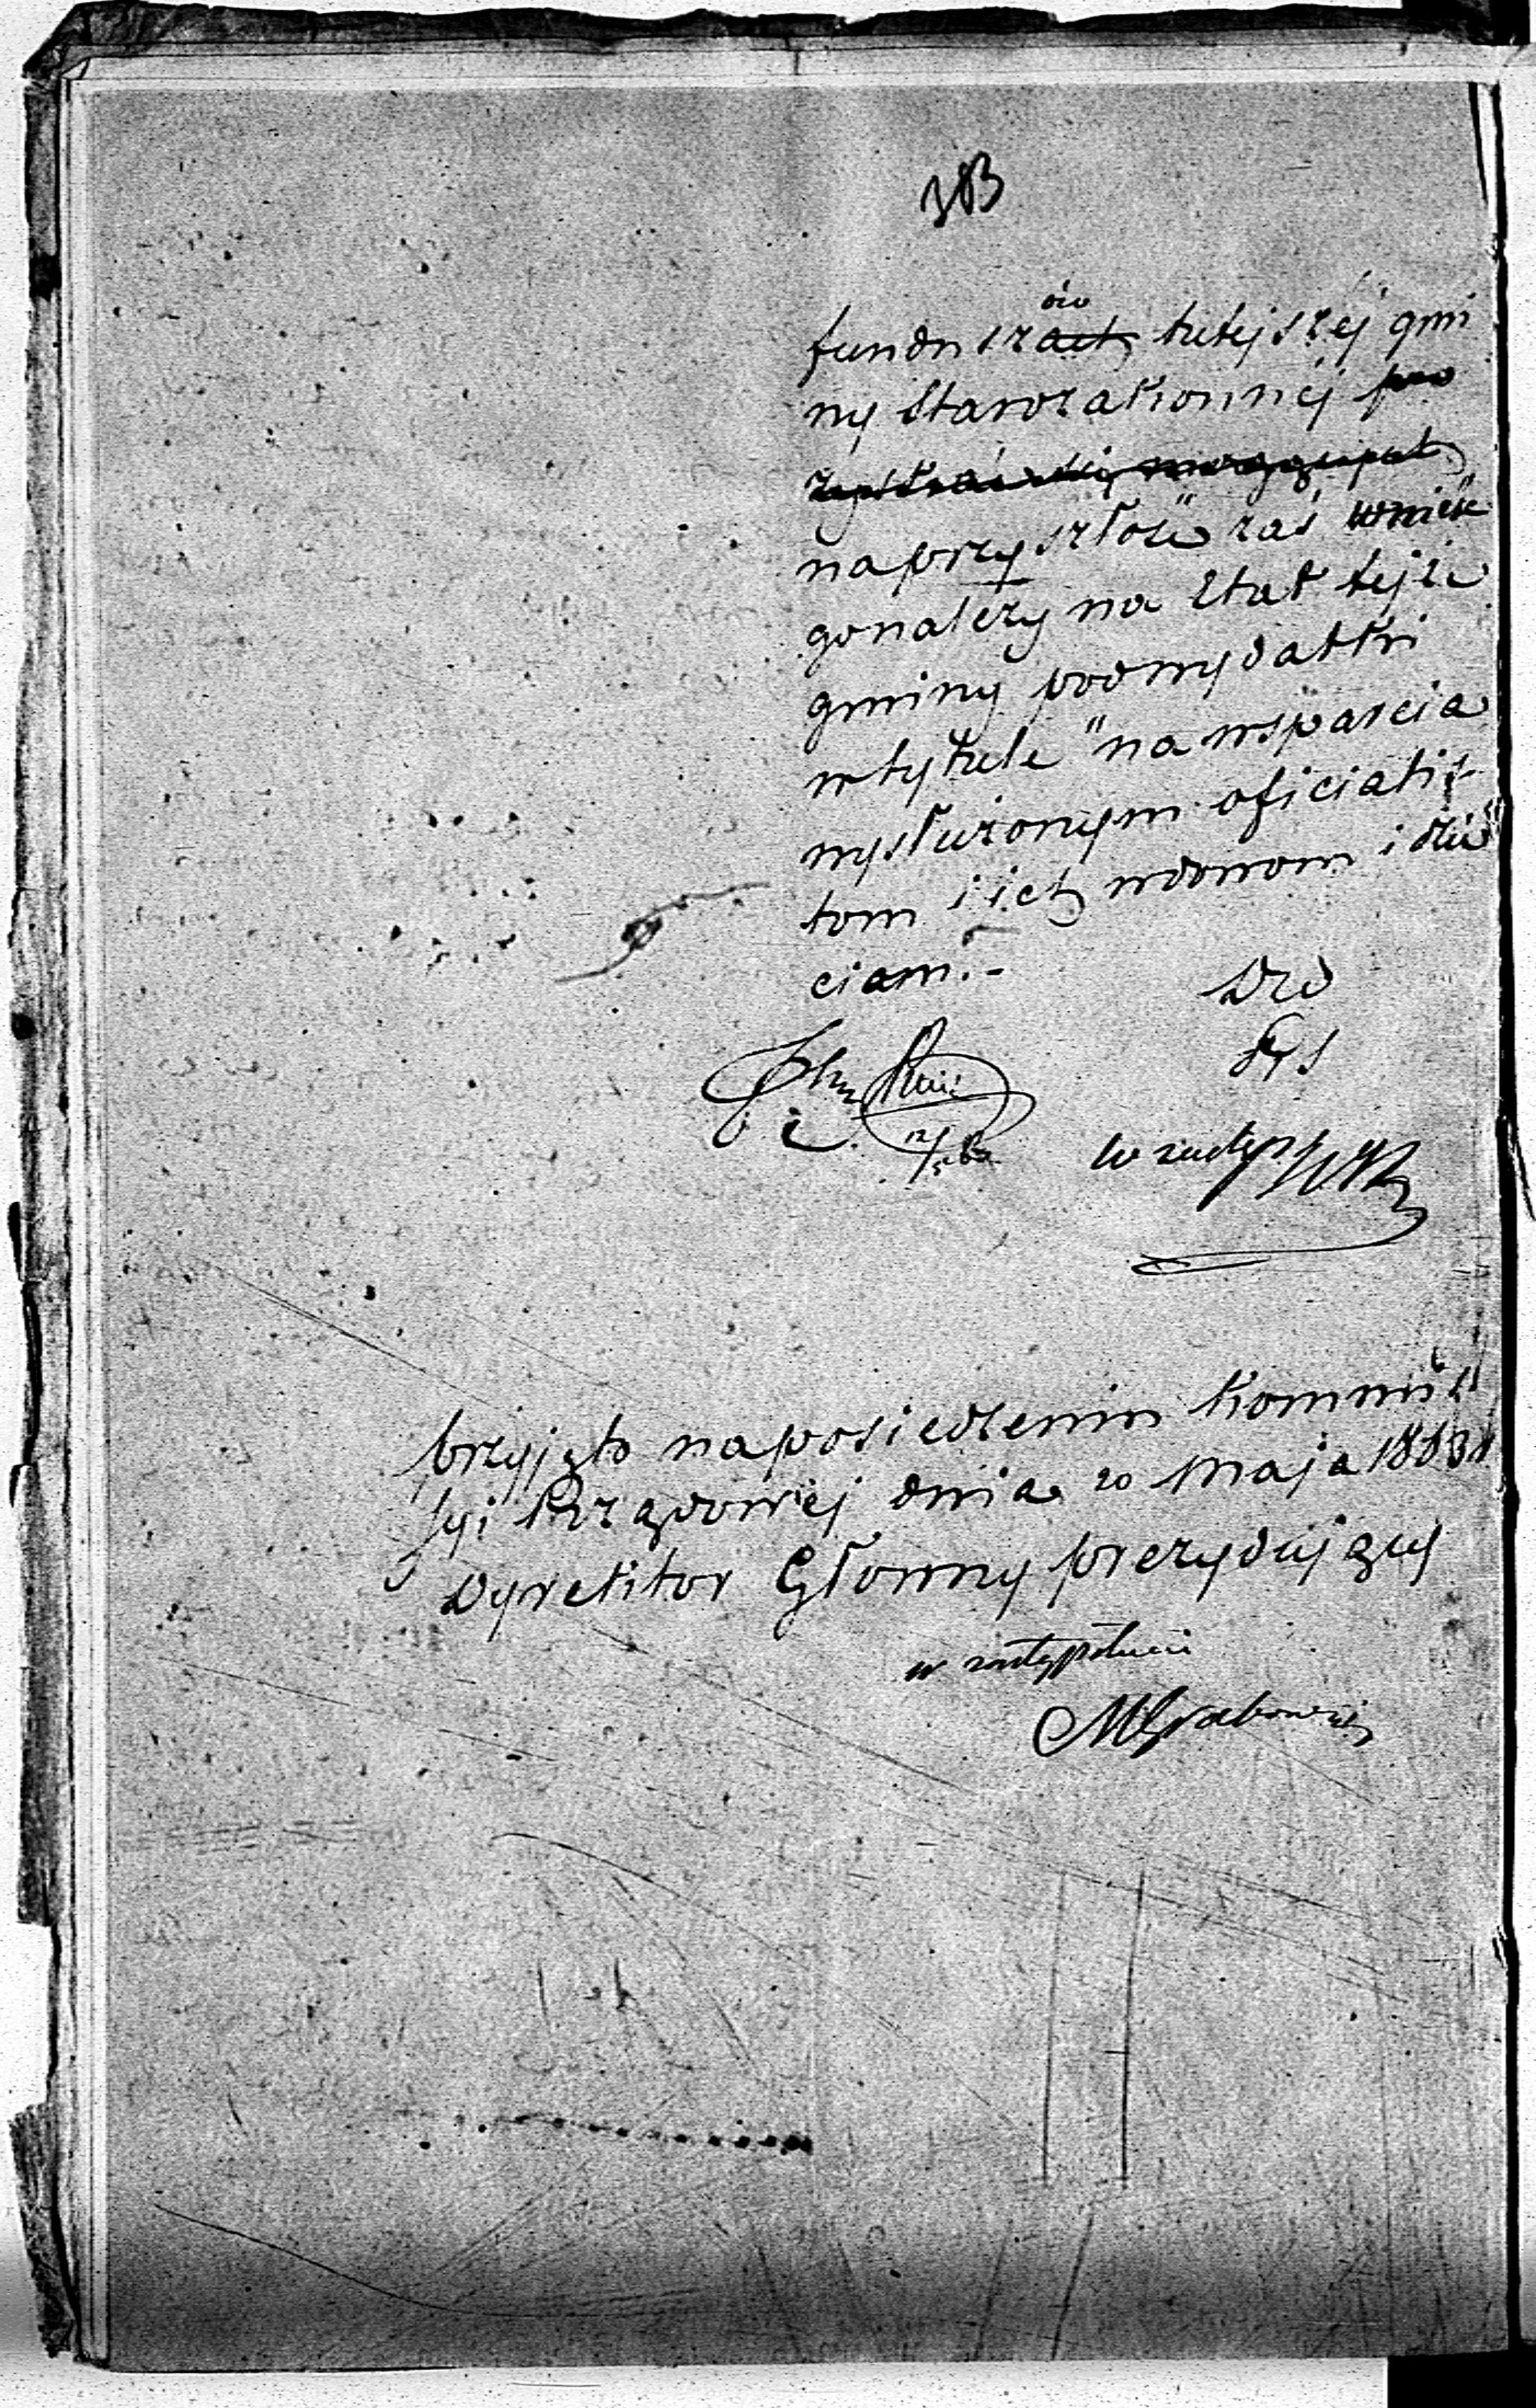 383
ów
funduszach tutejszej gmi
ny Starozakonnej
na przyszłość zaś wnieść
go należy na Etat tejże
gminy pod wydatki
w tytule "na wsparcia
wysłużonym oficiali¬
tom i ich wdowom i dzie"
ciom.-
DzD
w zastęp.
Przyjęto na posiedzeniu Kommis
syi Rządowej dnia 20 Maja 1863 r
Dyrektor Główny prezydujący
w zastępstwie